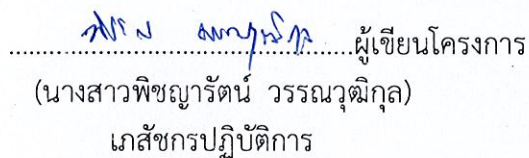 ........................................ผู้เขียนโครงการ
(นางสาวพิชญารัตน์ วรรณวุฒิกุล)
เภสัชกรปฏิบัติการ